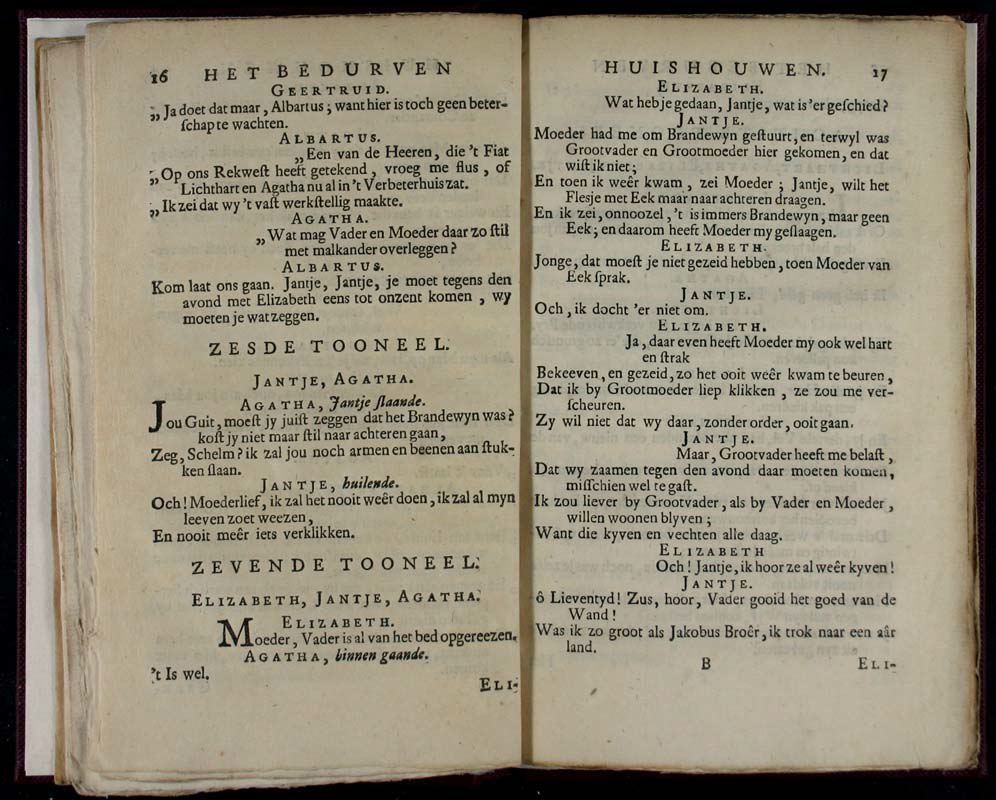 16 HET BEDURVEN
GEERTRUID.
„ Ja doet dat maar, Albartus; want hier is toch geen beter-
„ ſchap te wachten.
ALBARTUS.
„Een van de Heeren, die 't Fiat
„Op ons Rekweſt heeft getekend, vroeg me flus, of
„ Lichthart en Agatha nu al in 't Verbeterhuis zat.
„ Ik zei dat wy 't vaſt werkſtellig maakte.
AGATHA.
„Wat mag Vader en Moeder daar zo ſtil
„ met malkander overleggen?
ALBARTUS.
Kom laat ons gaan. Jantje, Jantje, je moet tegens den
avond met Elizabeth eens tot onzent komen, wy
moeten je wat zeggen.
ZESDE TOONEEL.
JANTJE, AGATHA.
AGATHA, Jantje ſlaande.
Jou Guit, moeſt jy juiſt zeggen dat het Brandewyn was?
koſt jy niet maar ſtil naar achteren gaan,
Zeg, Schelm? ik zal jou noch armen en beenen aan ſtuk-
ken ſlaan.
JANTJE, huilende.
Och! Moederlief, ik zal het nooit weêr doen, ik zal al myn
leeven zoet weezen,
En nooit meêr iets verklikken.
ZEVENDE TOONEEL.
ELIZABETH, JANTJE, AGATHA.
ELIZABETH.
Moeder, Vader is al van het bed opgereezen.
AGATHA, binnen gaande.
't Is wel.
ELI-
HUISHOUWEN. 17
ELIZABETH.
Wat heb je gedaan, Jantje, wat is 'er geſchied?
JANTJE.
Moeder had me om Brandewyn geſtuurt, en terwyl was
Grootvader en Grootmoeder hier gekomen, en dat
wiſt ik niet;
En toen ik weêr kwam, zei Moeder; Jantje, wilt het
Flesje met Eek maar naar achteren draagen.
En ik zei, onnoozel, 't is immers Brandewyn, maar geen
Eek; en daarom heeft Moeder my geſlaagen.
ELIZABETH.
Jonge, dat moeſt je niet gezeid hebben, toen Moeder van
Eek ſprak.
JANTJE.
Och, ik docht 'er niet om.
ELIZABETH.
Ja, daar even heeft Moeder my ook wel hart
en ſtrak
Bekeeven, en gezeid, zo het ooit weêr kwam te beuren,
Dat ik by Grootmoeder liep klikken, ze zou me ver-
ſcheuren.
Zy wil niet dat wy daar, zonder order, ooit gaan.
JANTJE.
Maar, Grootvader heeft me belaſt,
Dat wy zaamen tegen den avond daar moeten komen,
miſſchien wel te gaſt.
Ik zou liever by Grootvader, als by Vader en Moeder,
willen woonen blyven;
Want die kyven en vechten alle daag.
ELIZABETH
Och! Jantje, ik hoor ze al weêr kyven!
JANTJE.
ô Lieventyd! Zus, hoor, Vader gooid het goed van de
Wand!
Was ik zo groot als Jakobus Broêr, ik trok naar een aâr
land.
B ELI-